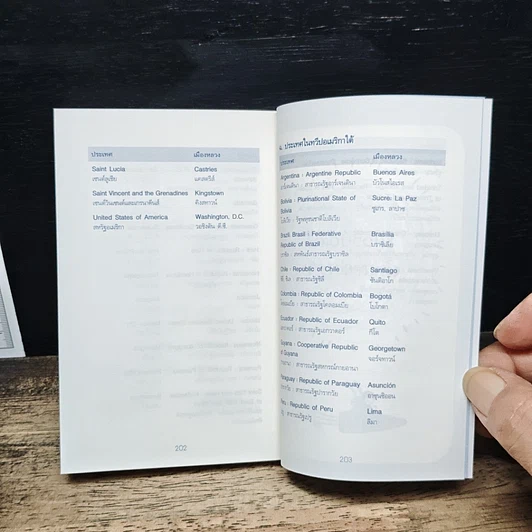 ประเทศ เมืองหลวง
Saint Lucia Castries
เซนต์ลูเซีย แคสตรีส์
Saint Vincent and the Grenadines Kingstown
เซนต์วินเซนต์และเกรนาดีนส์ คิงสทาวน์
United States of America Washington, D.C.
สหรัฐอเมริกา วอชิงตัน ดี.ซี.
202
ประเทศในทวีปอเมริกาใต้
ประเทศ เมืองหลวง
Argentina : Argentine Republic Buenos Aires
สาธารณรัฐอาร์เจนตินา บัวโนสไอเรส
Bolivia : Plurinational State of Sucre; La Paz
Bolivia ซูเกร, ลาปาซ
รัฐพหุชนชาติโบลิเวีย
Brazil; Brasil : Federative Brasília
Republic of Brazil บราซิเลีย
สหพันธ์สาธารณรัฐบราซิล
Chile : Republic of Chile Santiago
สาธารณรัฐชิลี ซันติอาโก
Colombia : Republic of Colombia Bogotá
สาธารณรัฐโคลอมเบีย โบโกตา
Ecuador : Republic of Ecuador Quito
สาธารณรัฐเอกวาดอร์ กีโต
Guyana : Cooperative Republic Georgetown
of Guyana จอร์จทาวน์
สาธารณรัฐสหกรณ์กายอานา
Paraguay : Republic of Paraguay Asunción
สาธารณรัฐปารากวัย อาซุนซิออน
Peru : Republic of Peru Lima
สาธารณรัฐเปรู ลิมา
203